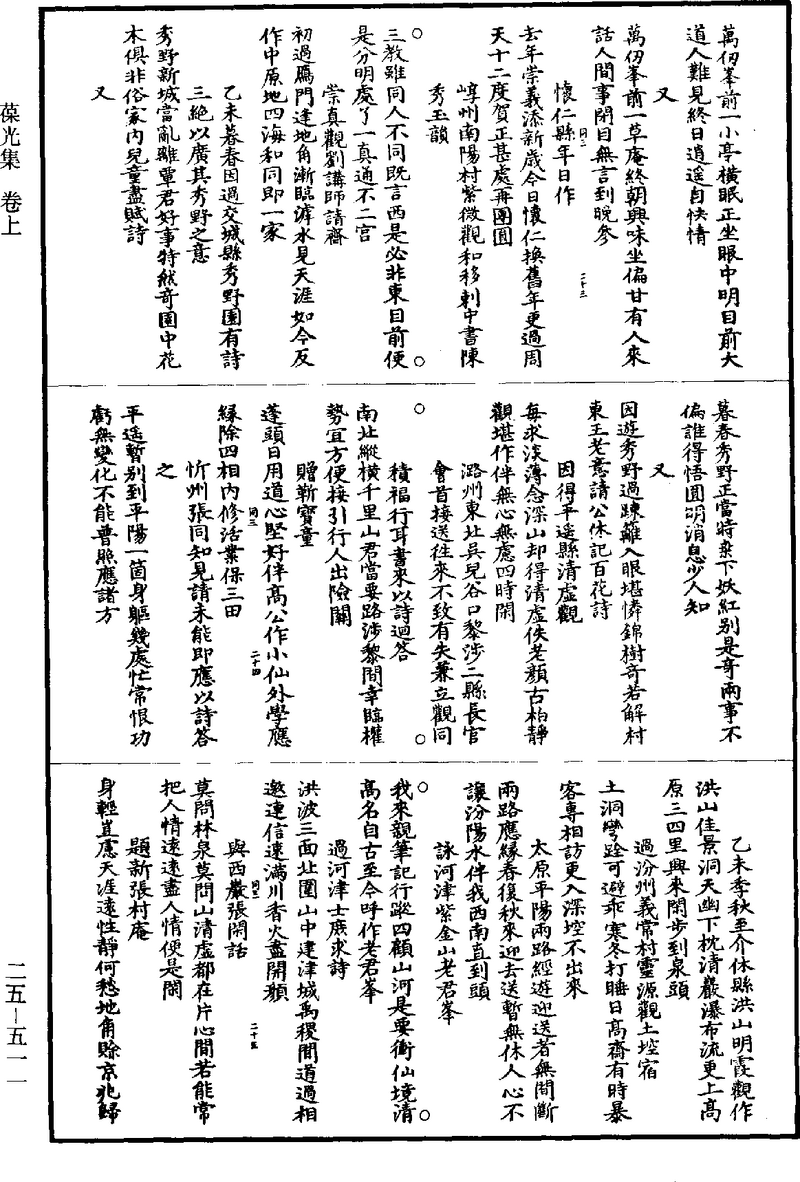 葆光集　卷上
萬仞峯前一小亭橫眠正坐眼中明目前大
道人難見終日逍遥自快情
又
萬仞峯前一草庵終朝興味坐偏甘有人來
話人間事閉目無言到晚參
懷仁縣年日作
同二
二十三
去年崇義添新歲今日懷仁換舊年更過周
天十二度賀正甚處再團圓
崞州南陽村紫微觀和移剌中書陳
秀玉韻
三教雖同人不同既言西是必非東目前便
是分明處了一真通不二宫
崇真觀劉講師請齋
初過鴈門達地角漸臨滹水見天涯如今反
作中原地四海和同即一家
乙未暮春因過交城縣秀野園有詩
三絶以廣其秀野之意
秀野新城當亂離覃君好事特然奇園中花
木俱非俗家内兒童盡賦詩
又
暮春秀野正當時棄下妖紅别是奇兩事不
偏誰得悟圓明消息少人知
又
因遊秀野過踈籬入眼堪憐錦樹奇若解村
東王老意請公休記百花詩
因得平遥縣清虚觀
每求淡薄念深山却得清虚佚老顔古柏靜
觀堪作伴無心無慮四時閑
潞州東北吳兒谷口黎涉二縣長官
會首接送往來不致有失兼立觀同
積福行耳書來以詩迴答
南北縱横千里山君當要路涉黎間幸臨權
勢宜方便接引行人出險關
贈靳寶童
同三
二十四
蓬頭日用道心堅好伴高公作小仙外學應
緣除四相内修活業保三田
忻州張同知見請未能即應以詩答
之
平遥暫别到平陽一箇身軀幾處忙常恨功
虧無變化不能普照應諸方
乙未季秋至介休縣洪山明霞觀作
洪山佳景洞天幽下枕清巖瀑布流更上高
原三四里興來閑步到泉頭
過汾州義常村靈源觀土埪宿
土洞彎跧可避乖寒冬打睡日高齋有時暴
客專相訪更入深埪不出來
太原平陽兩路經遊迎送者無間斷
兩路應緣春復秋來迎去送暫無休人心不
讓汾陽水伴我西南直到頭
詠河津紫金山老君峯
我來親筆記行蹤四顧山河是要衝仙境清
高名自古至今呼作老君峯
過河津士庶求詩
洪波三面北圍山中建津城禹稷間道過相
邀連信遠滿川香火盡開顔
同三
二十五
與西巖張閑話
莫問林泉莫問山清虚都在片心間若能常
把人情遠遠盡人情便是閑
題新張村庵
身輕豈慮天涯遠性靜何愁地角賒京兆歸
二五－五一一